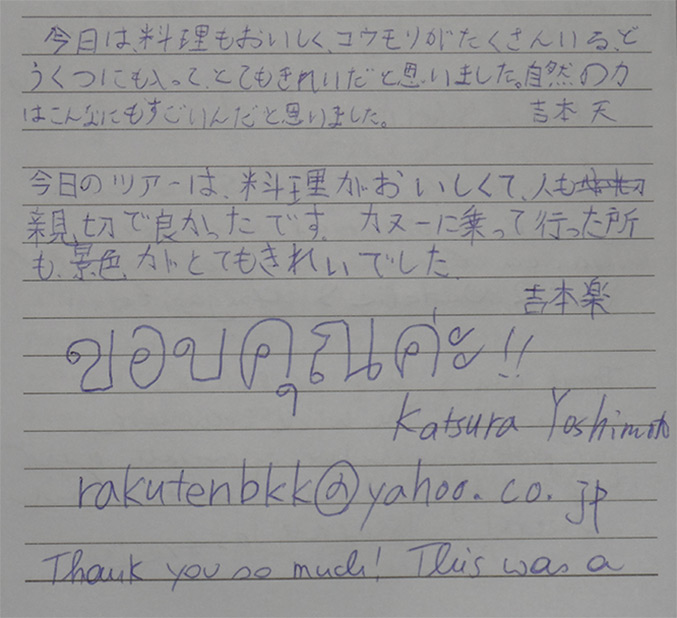 今日は、料理もおいしく、コウモリがたくさんいる、ど
うくつにも入って、とてもきれいだと思いました。自然の力
はこんなにもすごいんだと思いました。 吉本 天
今日のツアーは、料理がおいしくて、人も
親切で良かったです。カヌーに乗って行った所
も、景色がとてもきれいでした。
吉本楽
ขอบคุณค่ะ!!
Katsura Yoshimoto
rakutenbkk@yahoo.co.jp
Thank you so much! This was a